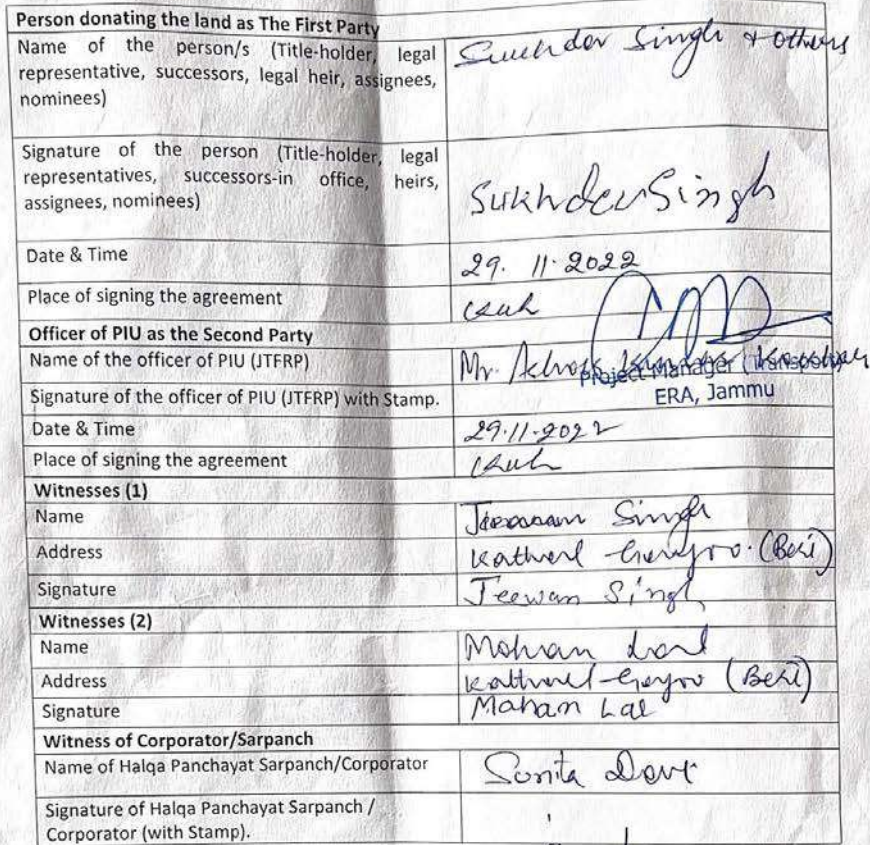 Person donating the land as The First Party
Name of the person/s (Title-holder, legal
representative, successors, legal heir, assignees,
nominees)
Singh & others
Signature of the person (Title-holder, legal
representatives, successors-in office, heirs,
assignees, nominees)
Sukhdev Singh
Date & Time
29. 11. 2022
Place of signing the agreement
Officer of PIU as the Second Party
Name of the officer of PIU (JTFRP)
Mr.
Project Manager (Transport)
Signature of the officer of PIU (JTFRP) with Stamp.
ERA, Jammu
Date & Time
29.11.2022
Place of signing the agreement
Witnesses (1)
Name
Singh
Address
(Beri)
Signature
Jeewan Singh
Witnesses (2)
Name
Mohan Lal
Address
(Beri)
Signature
Mohan Lal
Witness of Corporator/Sarpanch
Name of Halqa Panchayat Sarpanch/Corporator
Sunita Devi
Signature of Halqa Panchayat Sarpanch /
Corporator (with Stamp).